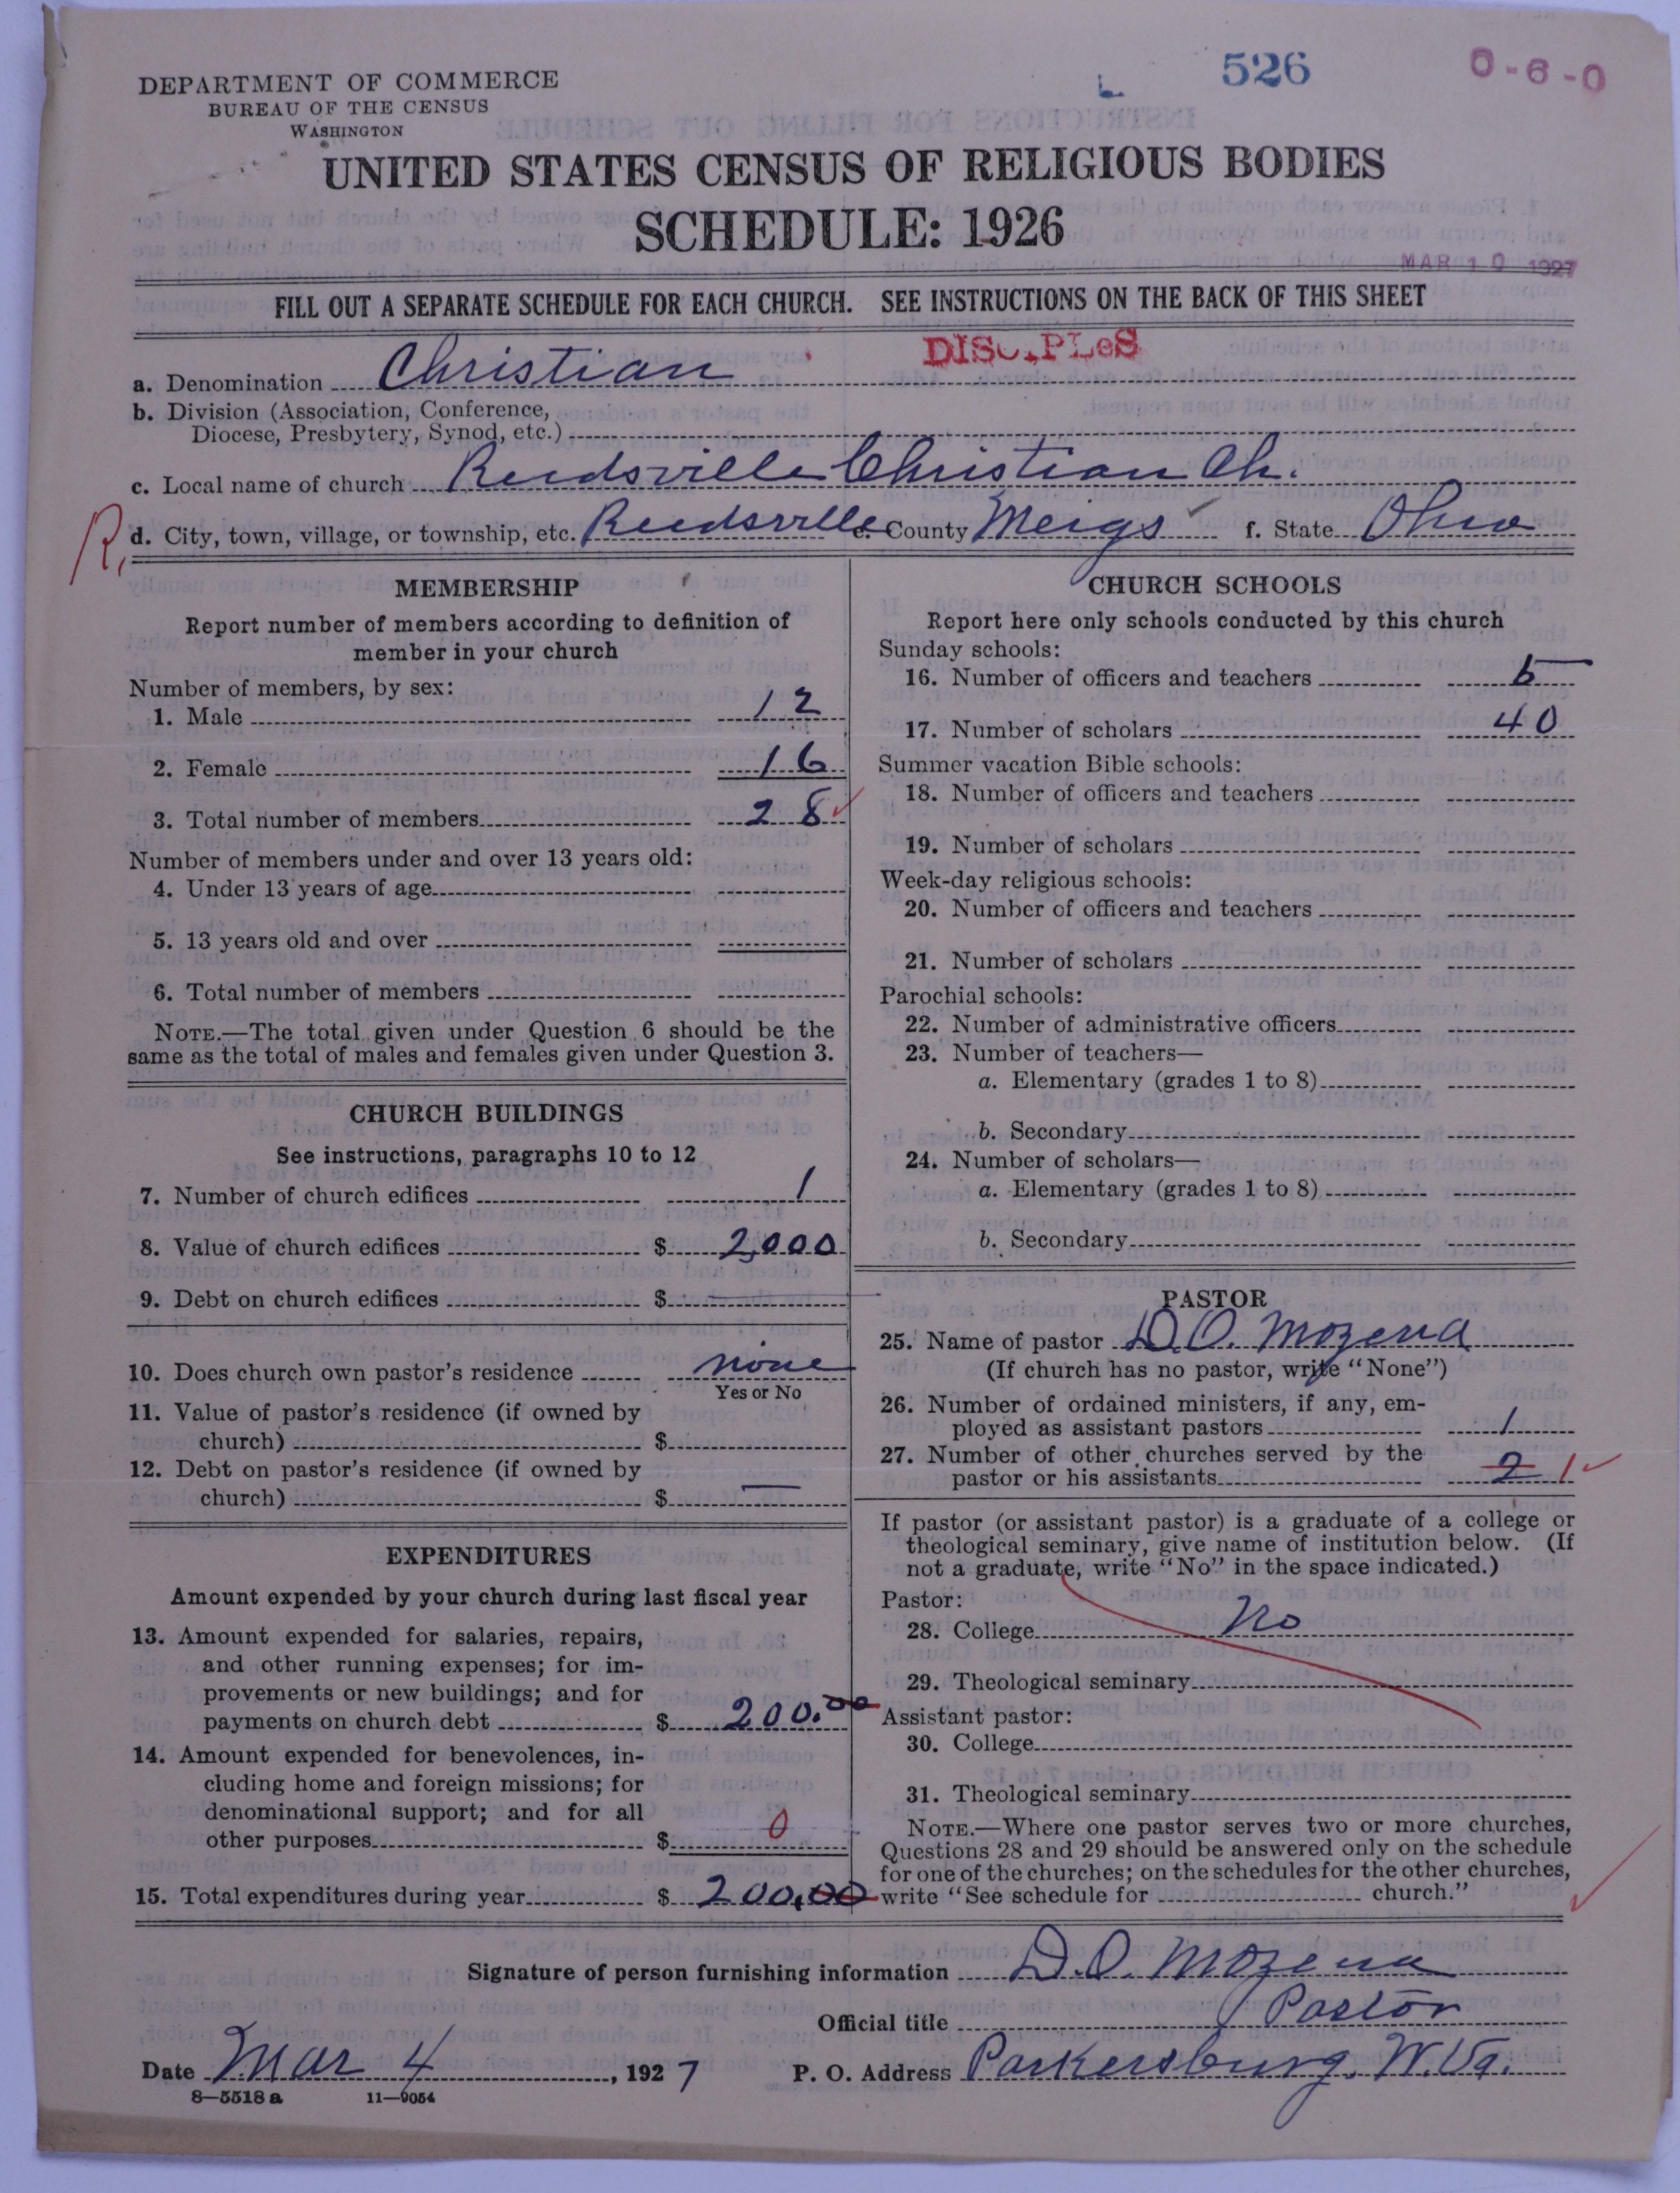 526
0-6-0
DEPARTMENT OF COMMERCE
BUREAU OF THE CENSUS
WASHINGTON
UNITED STATES CENSUS OF RELIGIOUS BODIES
SCHEDULE: 1926
MAR 10 1927
FILL OUT A SEPARATE SCHEDULE FOR EACH CHURCH. SEE INSTRUCTIONS ON THE BACK OF THIS SHEET
DISCIPLeS
a. Denomination Christian
b. Division (Association, Conference,
Diocese, Presbytery, Synod, etc.)
c. Local name of church Reedsville Christian Ch.
R. d. City, town, village, or township, etc. Reedsville e. County Meigs f. State Ohio
MEMBERSHIP
Report number of members according to definition of
member in your church
Number of members, by sex:
1. Male 12
2. Female 16
3. Total number of members 28
Number of members under and over 13 years old:
4. Under 13 years of age
5. 13 years old and over
6. Total number of members
NOTE.—The total given under Question 6 should be the
same as the total of males and females given under Question 3.
CHURCH BUILDINGS
See instructions, paragraphs 10 to 12
7. Number of church edifices 1
8. Value of church edifices $ 2,000
9. Debt on church edifices $
10. Does church own pastor's residence none
Yes or No
11. Value of pastor's residence (if owned by
church) $
12. Debt on pastor's residence (if owned by
church) $ —
EXPENDITURES
Amount expended by your church during last fiscal year
13. Amount expended for salaries, repairs,
and other running expenses; for im-
provements or new buildings; and for
payments on church debt $ 200.00
14. Amount expended for benevolences, in-
cluding home and foreign missions; for
denominational support; and for all
other purposes $ 0
15. Total expenditures during year $ 200.00
CHURCH SCHOOLS
Report here only schools conducted by this church
Sunday schools:
16. Number of officers and teachers 5
17. Number of scholars 40
Summer vacation Bible schools:
18. Number of officers and teachers
19. Number of scholars
Week-day religious schools:
20. Number of officers and teachers
21. Number of scholars
Parochial schools:
22. Number of administrative officers
23. Number of teachers—
a. Elementary (grades 1 to 8)
b. Secondary
24. Number of scholars—
a. Elementary (grades 1 to 8)
b. Secondary
PASTOR
25. Name of pastor D.O. Mozena
(If church has no pastor, write "None")
26. Number of ordained ministers, if any, em-
ployed as assistant pastors 1
27. Number of other churches served by the
pastor or his assistants 2 1
If pastor (or assistant pastor) is a graduate of a college or
theological seminary, give name of institution below. (If
not a graduate, write "No" in the space indicated.)
Pastor:
28. College No
29. Theological seminary
Assistant pastor:
30. College
31. Theological seminary
NOTE.—Where one pastor serves two or more churches,
Questions 28 and 29 should be answered only on the schedule
for one of the churches; on the schedules for the other churches,
write "See schedule for church."
Signature of person furnishing information D.O. Mozena
Official title Pastor
Date Mar 4, 1927 P. O. Address Parkersburg, W.Va.
8—5518 a 11—9054